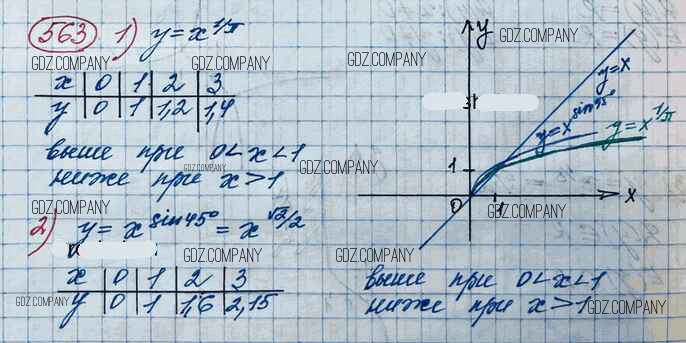 563 1) y = x^1/π
GDZ.COMPANY GDZ.COMPANY
x | 0 | 1 | 2 | 3
y | 0 | 1 | 1,2 | 1,4
выше при 0<x<1
GDZ.COMPANY
ниже при x>1
GDZ.COMPANY
2) y = x^sin45° = x^√2/2
GDZ.COMPANY
x | 0 | 1 | 2 | 3
GDZ.COMPANY
y | 0 | 1 | 1,6 | 2,15
y
GDZ.COMPANY GDZ.COMPANY
y=x
y=x^sin45°
y=x^1/π
1
GDZ.COMPANY
0 1 x
GDZ.COMPANY
GDZ.COMPANY GDZ.COMPANY
выше при 0<x<1
ниже при x>1
GDZ.COMPANY